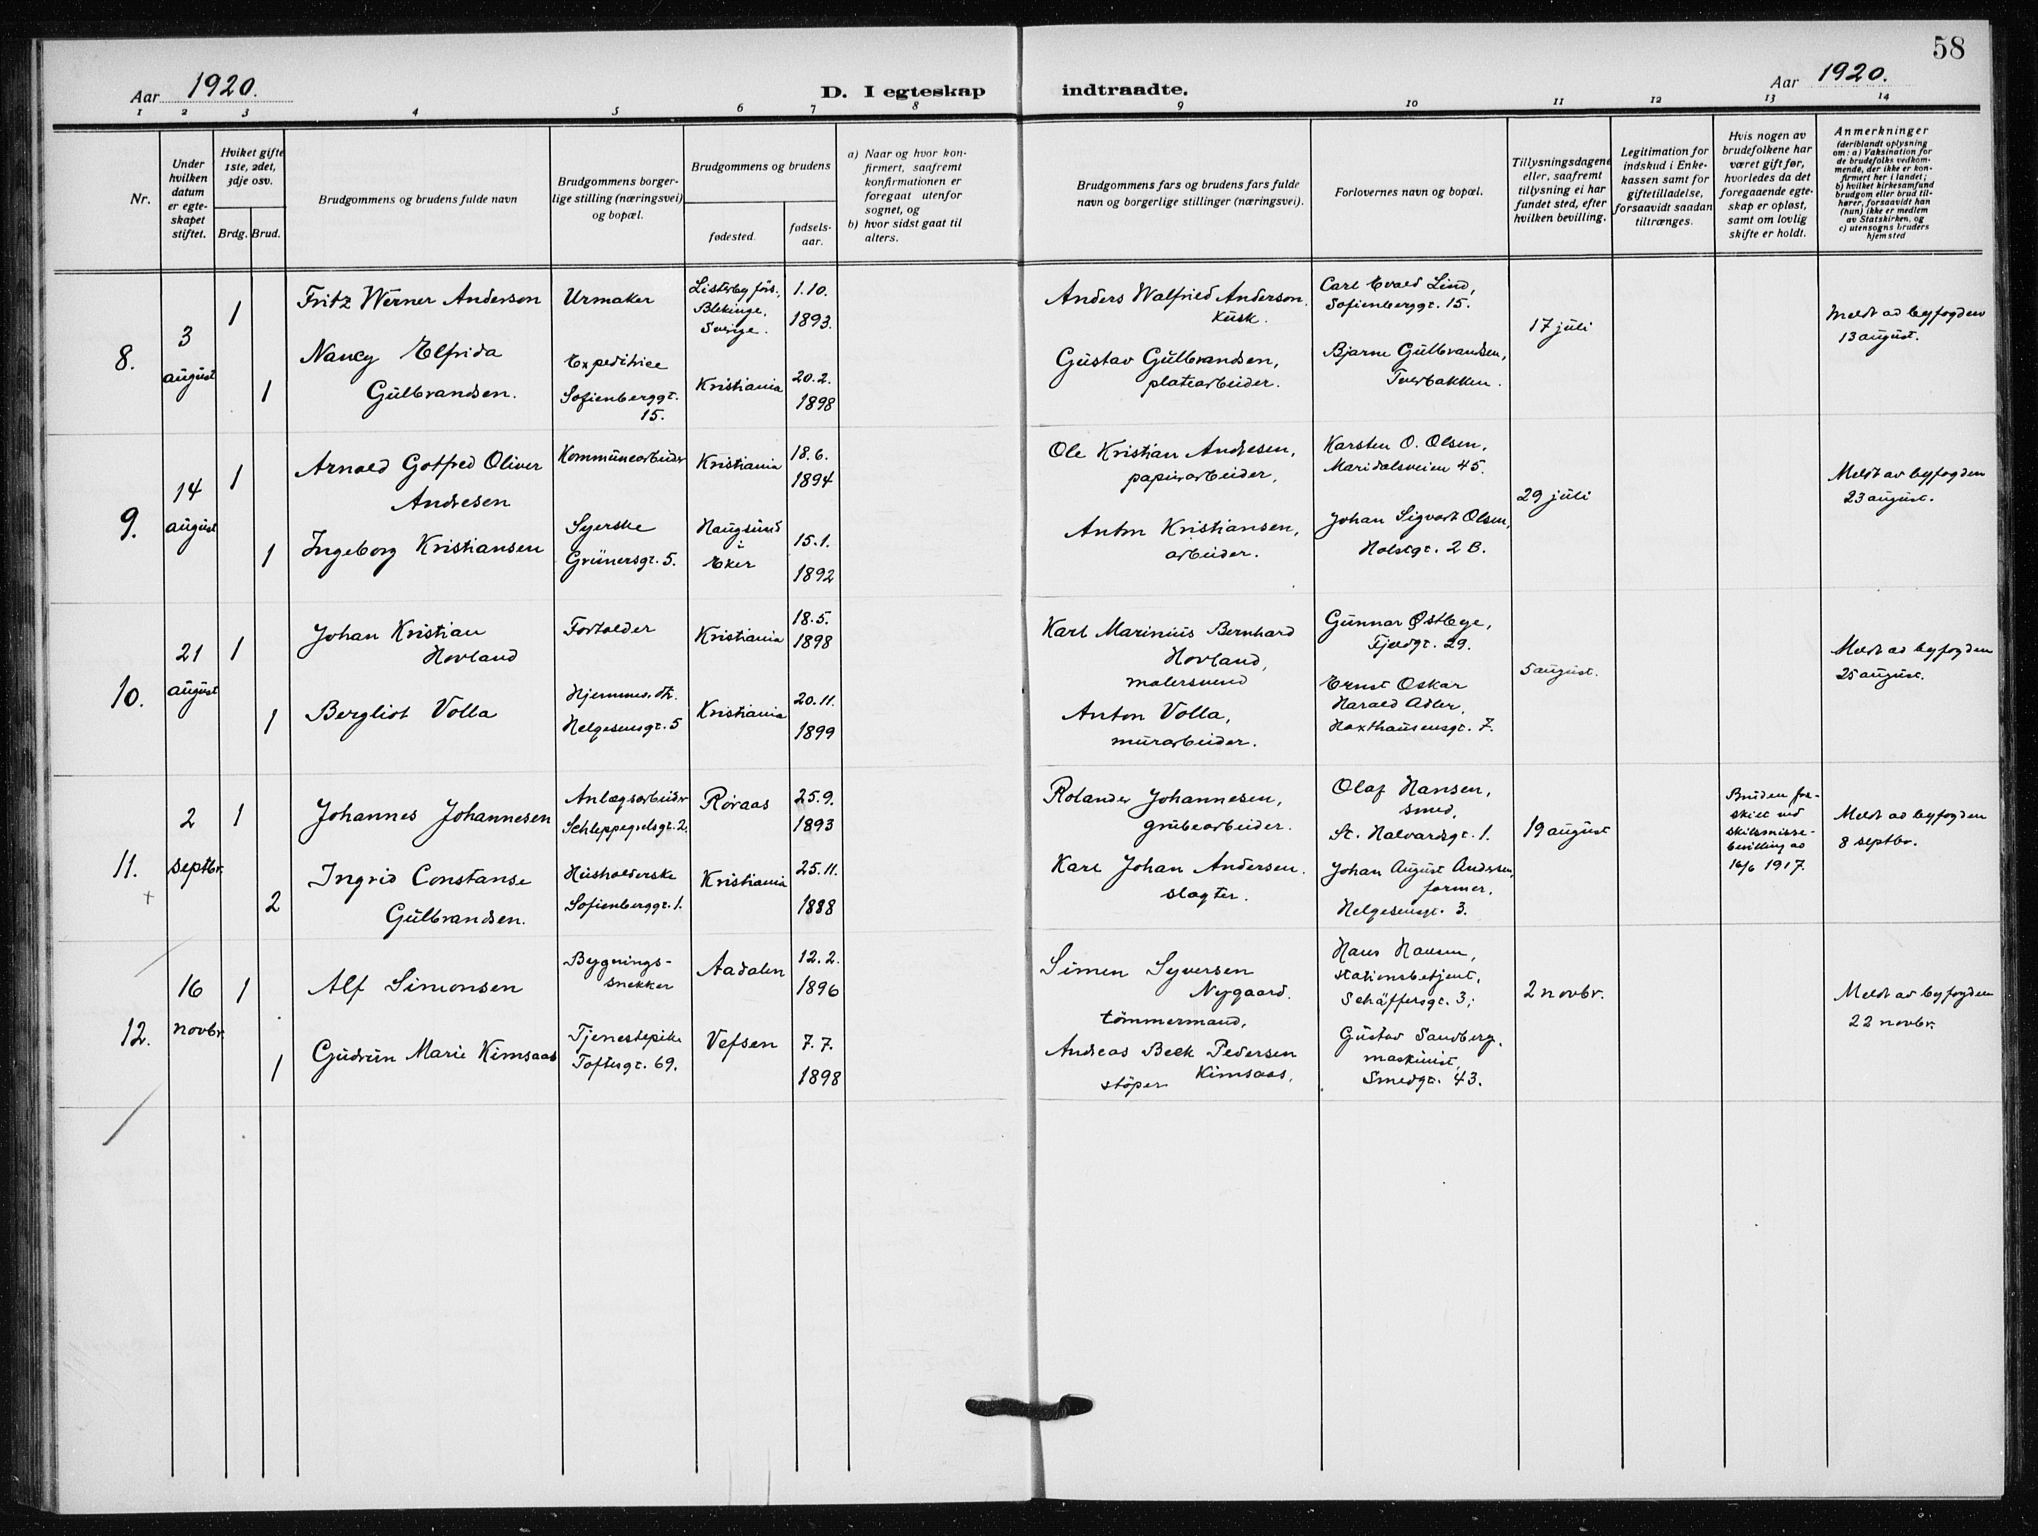 58
Aar 1920.
D. I egteskap indtraadte.
Aar 1920.
1 2 3 4 5 6 7 8 9 10 11 12 13 14
Nr.
Under hvilken datum er egteskapet stiftet.
Hviket gifte 1ste, 2det, 3dje osv.
Brdg. Brud.
Brudgommens og brudens fulde navn
Brudgommens borgerlige stilling (næringsvei) og bopæl.
Brudgommens og brudens
fødested.
fødselsaar.
a) Naar og hvor konfirmert, saafremt konfirmationen er foregaat utenfor sognet, og
b) hvor sidst gaat til alters.
Brudgommens fars og brudens fars fulde navn og borgerlige stillinger (næringsvei).
Forlovernes navn og bopæl.
Tillysningsdagene eller, saafremt tillysning ei har fundet sted, efter hvilken bevilling.
Legitimation for indskud i Enkekassen samt for giftetilladelse, forsaavidt saadan tiltrænges.
Hvis nogen av brudefolkene har været gift før, hvorledes da det foregaaende egteskap er opløst, samt om lovlig skifte er holdt.
Anmerkninger
(deriblandt oplysning om: a) Vaksination for de brudefolks vedkommende, der ikke er konfirmert her i landet; b) hvilket kirkesamfund brudgom eller brud tilhører, forsaavidt han (hun) ikke er medlem av Statskirken, og c) utensogns bruders hjemsted
8.
3 august
1
Fritz Werner Anderson
Urmaker
Listerby förs., Blekinge, Sverige.
1.10. 1893.
Anders Walfried Anderson. Kusk.
Carl Evald Lind, Sofienberggt. 15.
17 juli
Meldt av byfogden 13 august.
1
Nancy Elfrida Gulbrandsen.
Expeditrice Sofienberggt. 15.
Kristiania
20.2. 1898
Gustav Gulbrandsen, platearbeider.
Bjarne Gulbrandsen, Tverbakken.
9.
14 august
1
Arnold Gotfred Oliver Andresen
Kommunearbeider
Kristiania
18.6. 1894
Ole Kristian Andresen, papirarbeider.
Karsten O. Olsen, Maridalsveien 45.
29 juli
Meldt av byfogden 23 august.
1
Ingeborg Kristiansen
Syerske Grünersgt. 5.
Haugsund i Eker
15.1. 1892
Anton Kristiansen, arbeider.
Johan Sigvart Olsen, Holstgt. 2 B.
10.
21 august
1
Johan Kristian Hovland
Forgylder
Kristiania
18.5. 1898
Karl Marinius Bernhard Hovland, malersvend
Gunnar Østbye, Fjeldgt. 29.
5 august.
Meldt av byfogden 25 august.
1
Bergliot Volla
Hjemmev. dt. Helgesensgt. 5
Kristiania
20.11. 1899
Anton Volla, murarbeider.
Ernst Oskar Harald Adler, Haxthausensgt. 7.
11.
2 septbr.
1
Johannes Johannesen
Anlægsarbeider Schleppegrelsgt. 2.
Røraas
25.9. 1893
Rolander Johannesen, grubearbeider.
Olaf Hansen, smed, St. Halvardsgt. 1.
19 august
Bruden fraskilt ved skilsmissebevilling av 16/6 1917.
Meldt av byfogden 8 septbr.
2
Ingrid Constanse Gulbrandsen.
Husholderske Sofienberggt. 1.
Kristiania
25.11. 1888
Karl Johan Andersen. slagter.
Johan August Andersen, former, Helgesensgt. 3.
12.
16 novbr.
1
Alf Simonsen
Bygningssnekker
Aadalen
12.2. 1896
Simen Syversen Nygaard. tømmermand,
Hans Hansen, stationsbetjent, Schäffersgt. 3;
2 novbr.
Meldt av byfogden 22 novbr.
1
Gudrun Marie Kimsaas
Tjenestepike Toftesgt. 69.
Vefsen
7.7. 1898
Andreas Beck Pedersen Kimsaas, støper
Gustav Sandberg, maskinist, Smedgt. 43.